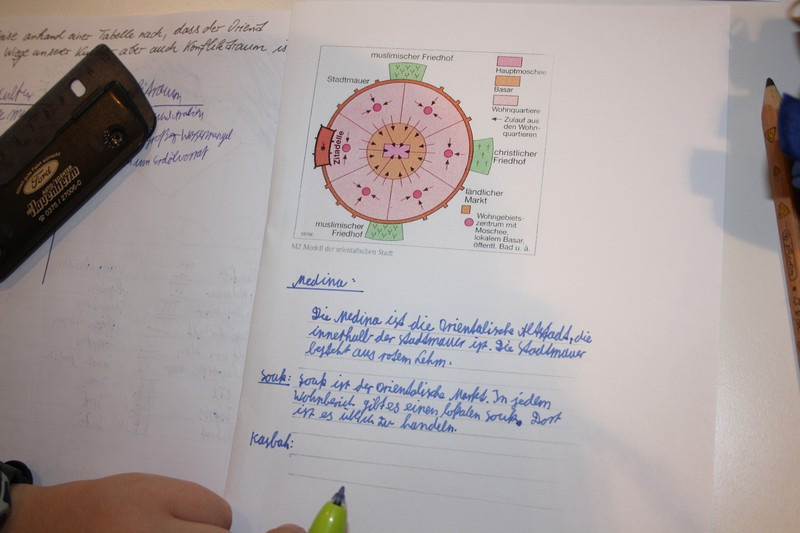 eise anhand einer Tabelle nach, dass der Orient
Wiege unserer Kultur aber auch Konfliktraum is
muslimischer Friedhof
Stadtmauer
Zitadelle
christlicher
Friedhof
ländlicher
Markt
muslimischer
Friedhof
Hauptmoschee
Basar
Wohnquartiere
Zulauf aus
den Wohn-
quartieren
Wohngebiets-
zentrum mit
Moschee,
lokalem Basar,
öffentl. Bad u. ä.
M2 Modell der orientalischen Stadt
Medina:
Die Medina ist die Orientalische Altstadt, die
innerhalb der Stadtmauer ist. Die Stadtmauer
besteht aus rotem Lehm.
Souk: Souk ist der Orientalische Markt. In jedem
Wohnberich gibt es einen lokalen Souk. Dort
ist es üblich zu handeln.
Kasbah:
Ford
Havenheim